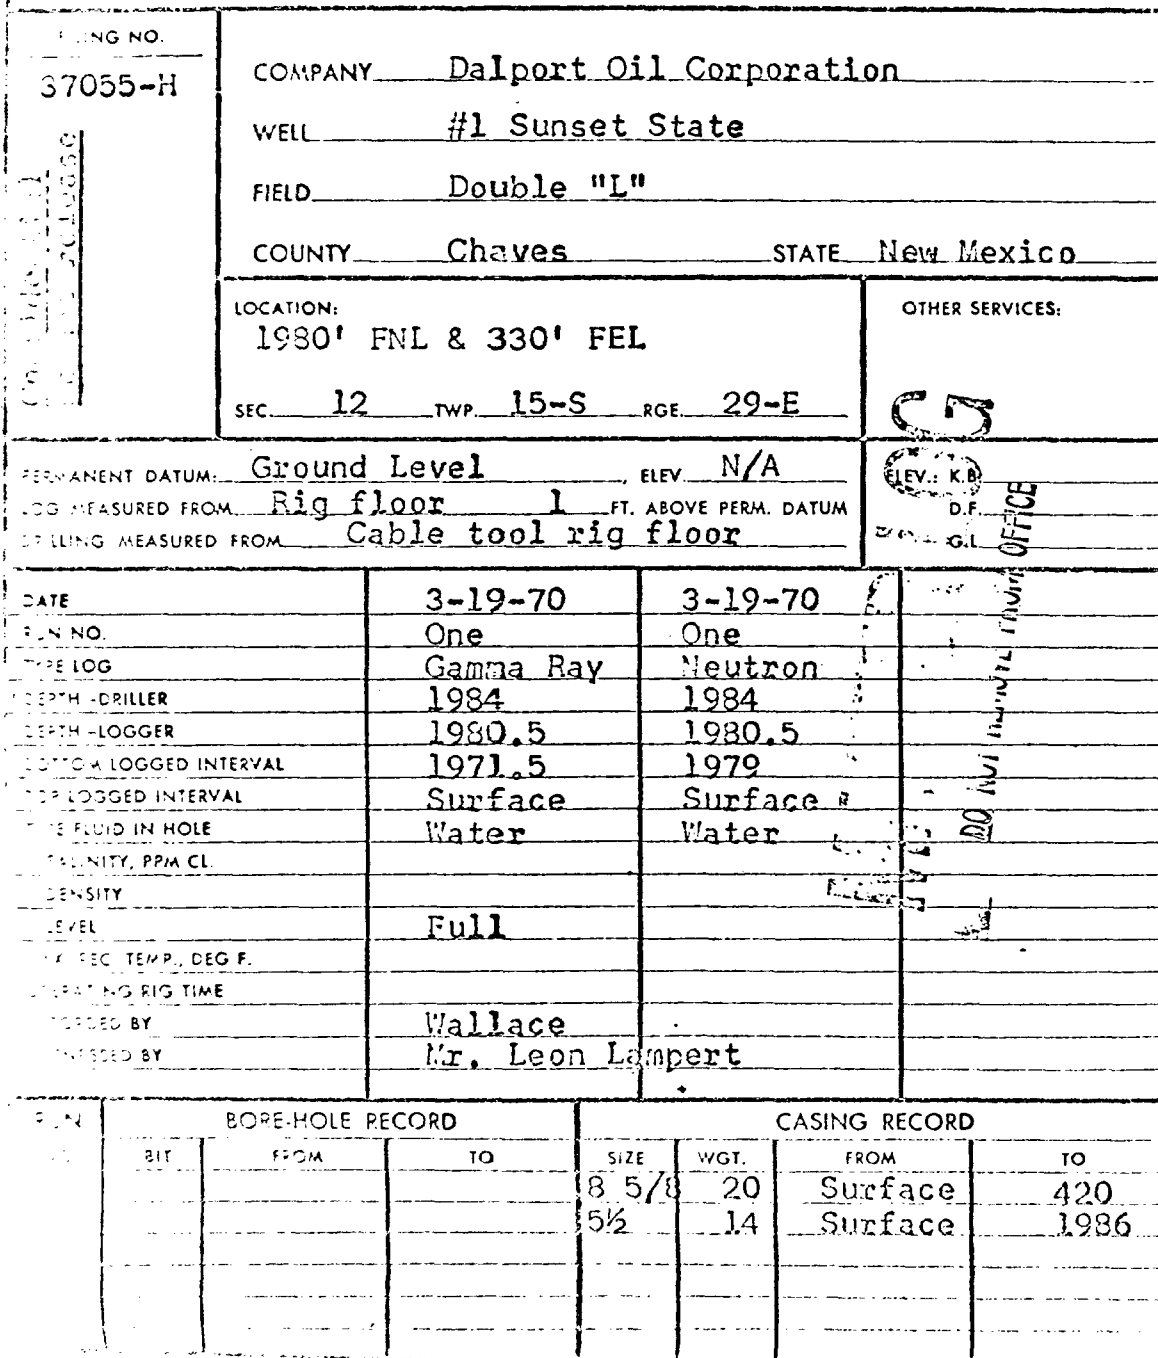 NO.
37055-H
COMPANY Dalport Oil Corporation
WELL #1 Sunset State
FIELD Double "L"
COUNTY Chaves STATE New Mexico
LOCATION:
1980' FNL & 330' FEL
SEC. 12 TWP. 15-S RGE. 29-E
OTHER SERVICES:
PERMANENT DATUM: Ground Level, ELEV. N/A
LOG MEASURED FROM Rig floor 1 FT. ABOVE PERM. DATUM
DRILLING MEASURED FROM Cable tool rig floor
ELEV.: K.B.
D.F.
G.L.
DO NOT REMOVE FROM OFFICE
DATE 3-19-70 3-19-70
RUN NO. One One
TYPE LOG Gamma Ray Neutron
DEPTH-DRILLER 1984 1984
DEPTH-LOGGER 1980.5 1980.5
BOTTOM LOGGED INTERVAL 1971.5 1979
TOP LOGGED INTERVAL Surface Surface
TYPE FLUID IN HOLE Water Water
SALINITY, PPM CL.
DENSITY
LEVEL Full
REC. TEMP., DEG F.
OPERATING RIG TIME
RECORDED BY Wallace
WITNESSED BY Mr. Leon Lampert
RUN BORE-HOLE RECORD CASING RECORD
BIT FROM TO SIZE WGT. FROM TO
8 5/8 20 Surface 420
5½ 14 Surface 1986